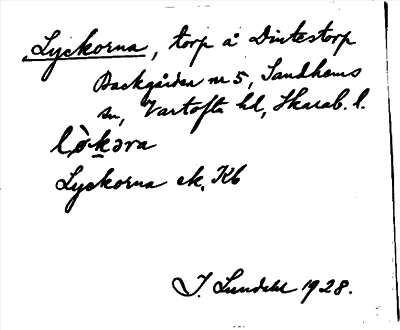 Lyckorna, torp å Dintestorp
Backgården nr 5, Sandhems
sn, Vartofta hd, Skarab. l.
lø̀kəra
Lyckorna ek. Kb
I. Lundahl 1928.